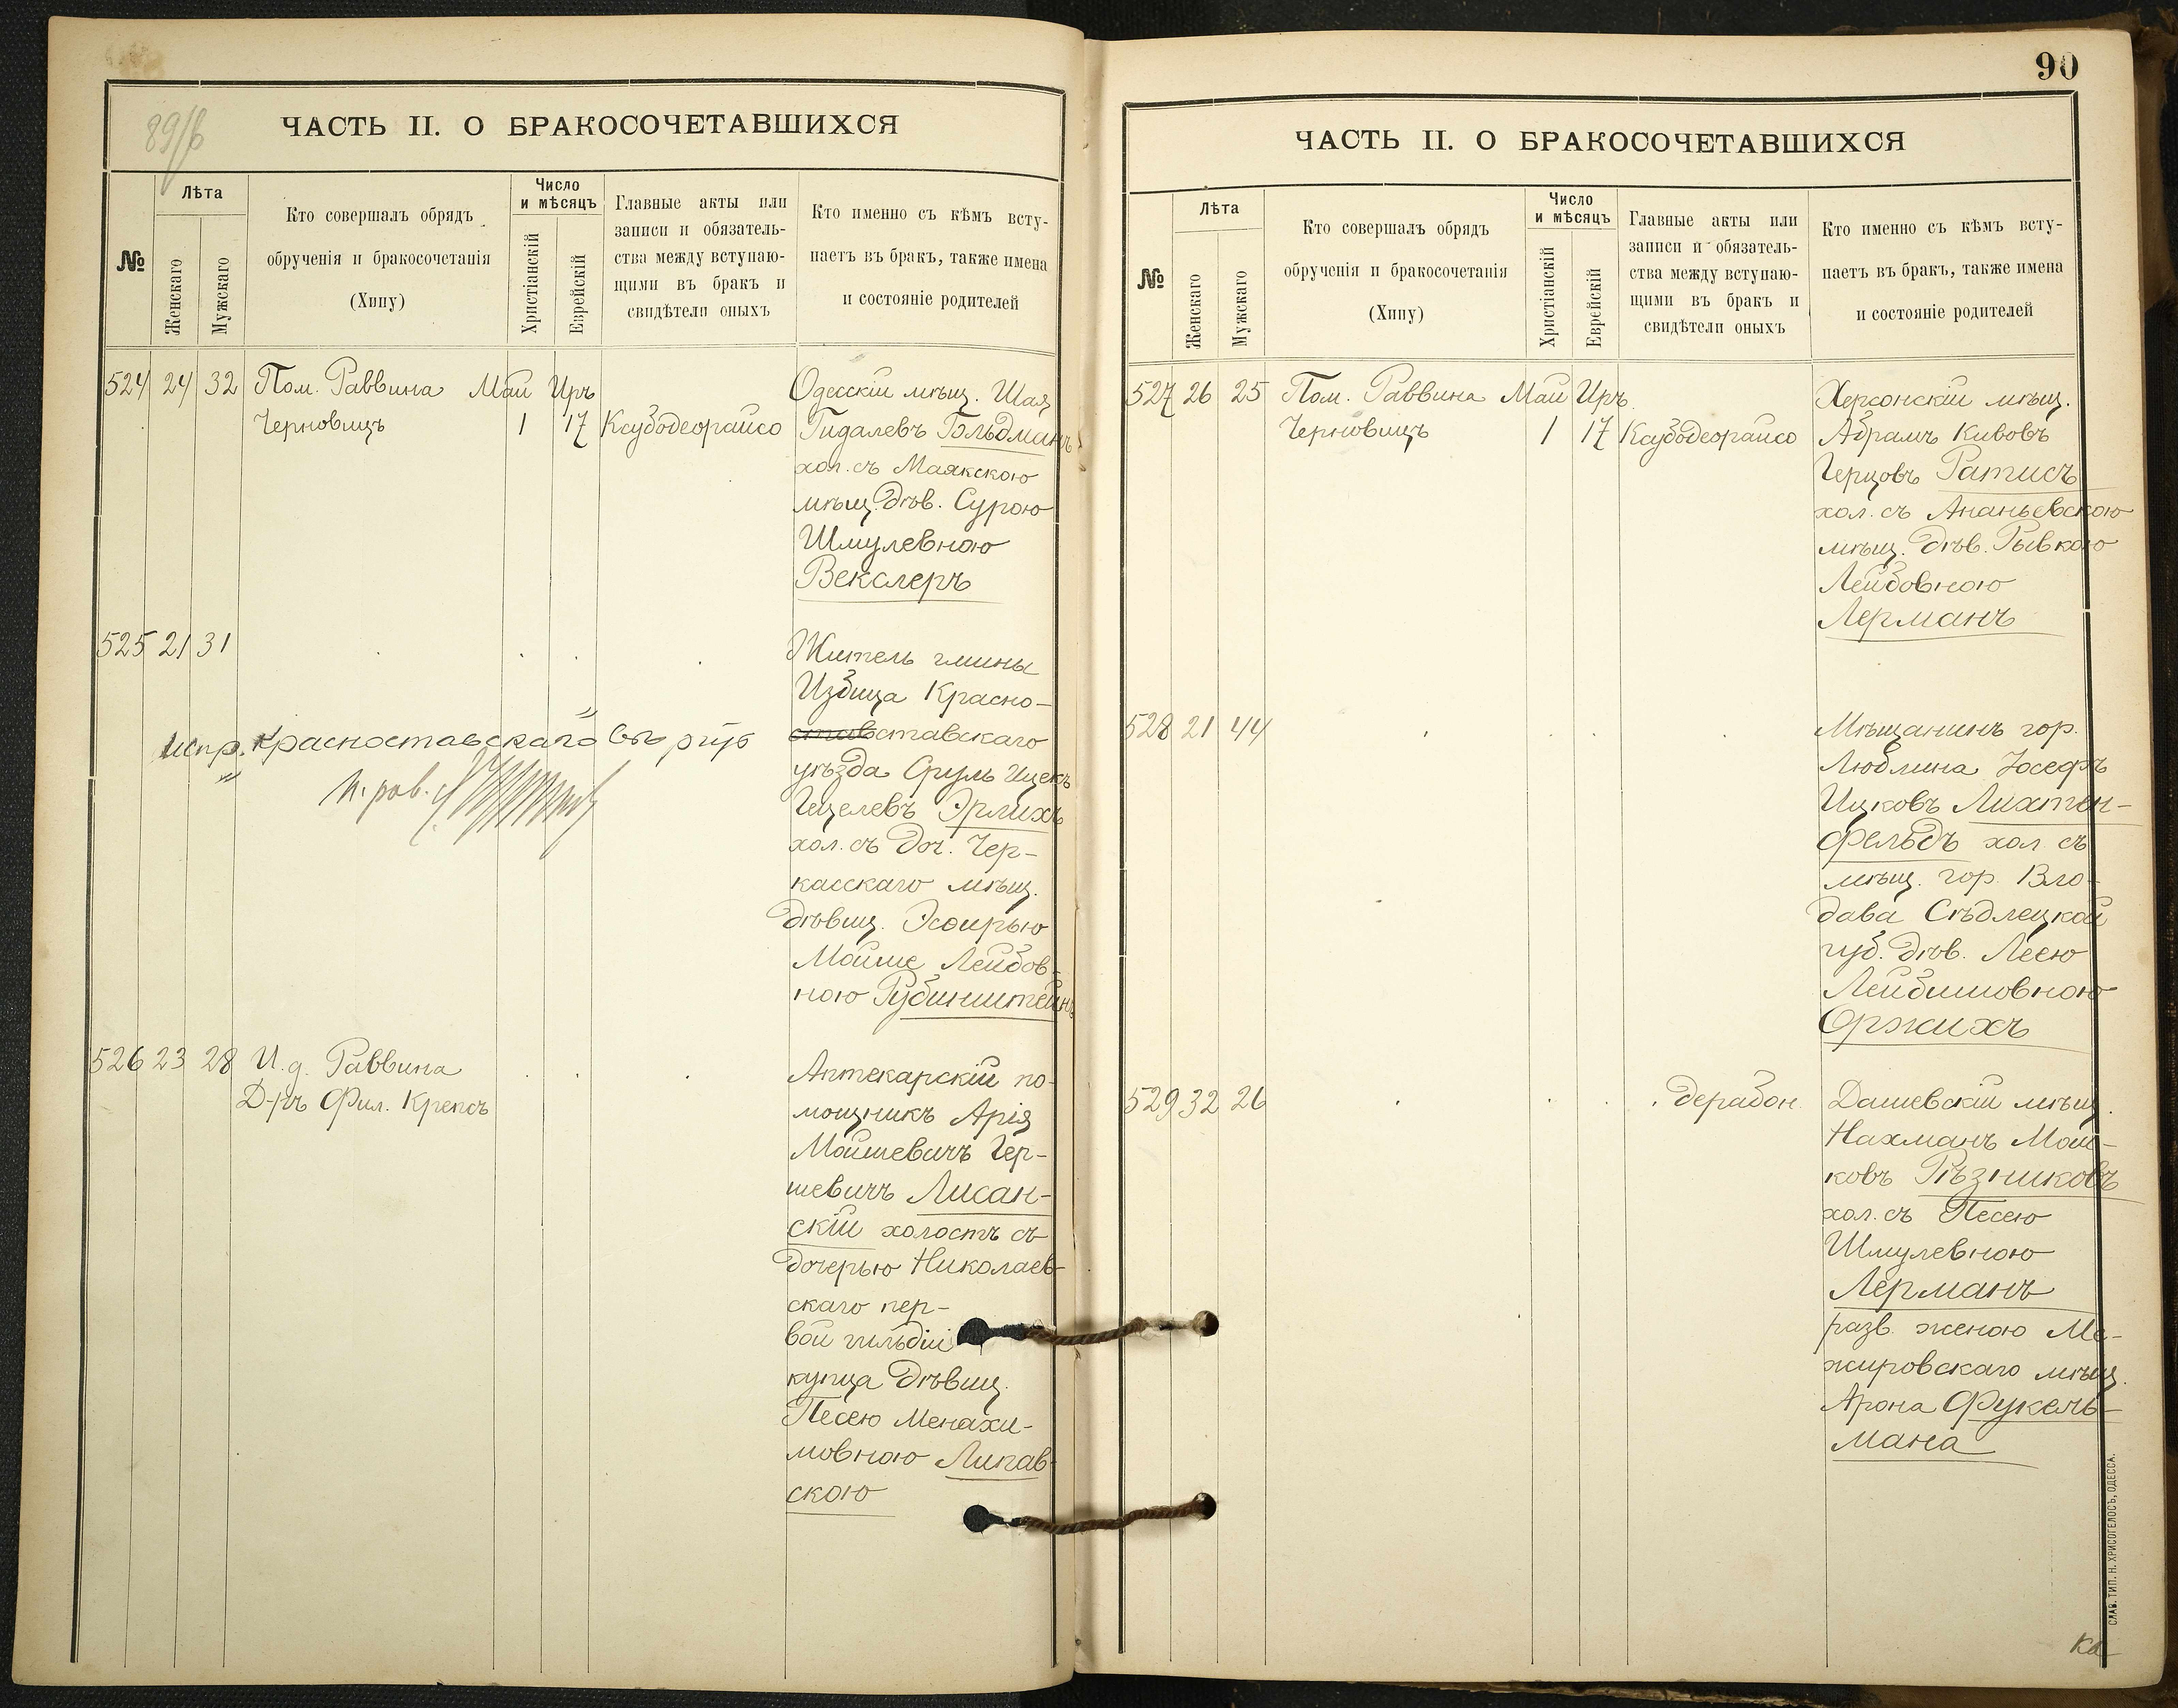 89/б
ЧАСТЬ II. О БРАКОСОЧЕТАВШИХСЯ
№
Лѣта
Женскаго
Мужскаго
Кто совершалъ обрядъ
обрученія и бракосочетанія
(Хипу)
Число
и мѣсяцъ
Христіанскій
Еврейскій
Главные акты или
записи и обязатель-
ства между вступаю-
щими въ бракъ и
свидѣтели оныхъ
Кто именно съ кѣмъ всту-
паетъ въ бракъ, также имена
и состояніе родителей
524 24 32 Пом. Раввина Май Иръ
Черновицъ 1 17 Ксубодеорайсо
Одесскій мѣщ. Шая
Гидалевъ Гольдманъ
хол. съ Маякскою
мѣщ. дѣв. Сурою
Шмулевною
Векслеръ
525 21 31
Житель гмины
Избица Красно-
ставставскаго
уѣзда Сруль Ицекъ
Гецелевъ Эрлихъ
хол. съ доч. Чер-
касскаго мѣщ.
дѣвиц. Эсѳирью
Мойше Лейбов-
ною Рубинштейнъ
испр. "Красноставскаго"
526 23 28 И. д. Раввина
Д-ръ Фил. Крепсъ
Аптекарскій по-
мощникъ Арія
Мойшевичъ Гер-
шевичъ Лисан-
скій холостъ съ
дочерью Николаев-
скаго пер-
вой гильдіи
купца дѣвиц.
Песею Менахи-
мовною Липав-
скою
90
ЧАСТЬ II. О БРАКОСОЧЕТАВШИХСЯ
№
Лѣта
Женскаго
Мужскаго
Кто совершалъ обрядъ
обрученія и бракосочетанія
(Хипу)
Число
и мѣсяцъ
Христіанскій
Еврейскій
Главные акты или
записи и обязатель-
ства между вступаю-
щими въ бракъ и
свидѣтели оныхъ
Кто именно съ кѣмъ всту-
паетъ въ бракъ, также имена
и состояніе родителей
527 26 25 Пом. Раввина Май Иръ
Черновицъ 1 17 Ксубодеорайсо
Херсонскій мѣщ.
Абрамъ Кивовъ
Герцовъ Ратисъ
хол. съ Ананьевскою
мѣщ. дѣв. Рывкою
Лейбовною
Лерманъ
528 21 44
Мѣщанинъ гор.
Люблина Іосефъ
Ицковъ Лихтен-
фельдъ хол. съ
мѣщ. гор. Вло-
дава Сѣдлецкой
губ. дѣв. Леею
Лейбишовною
Оржихъ
529 32 26 дерабон.
Дашевскій мѣщ.
Нахманъ Мош-
ковъ Рѣзниковъ
хол. съ Песею
Шмулевною
Лерманъ
разв. женою Ме-
жировскаго мѣщ.
Арона Фукель-
мана
СЛАВ. ТИП. Н. ХРИСОГЕЛОСЪ, ОДЕССА.